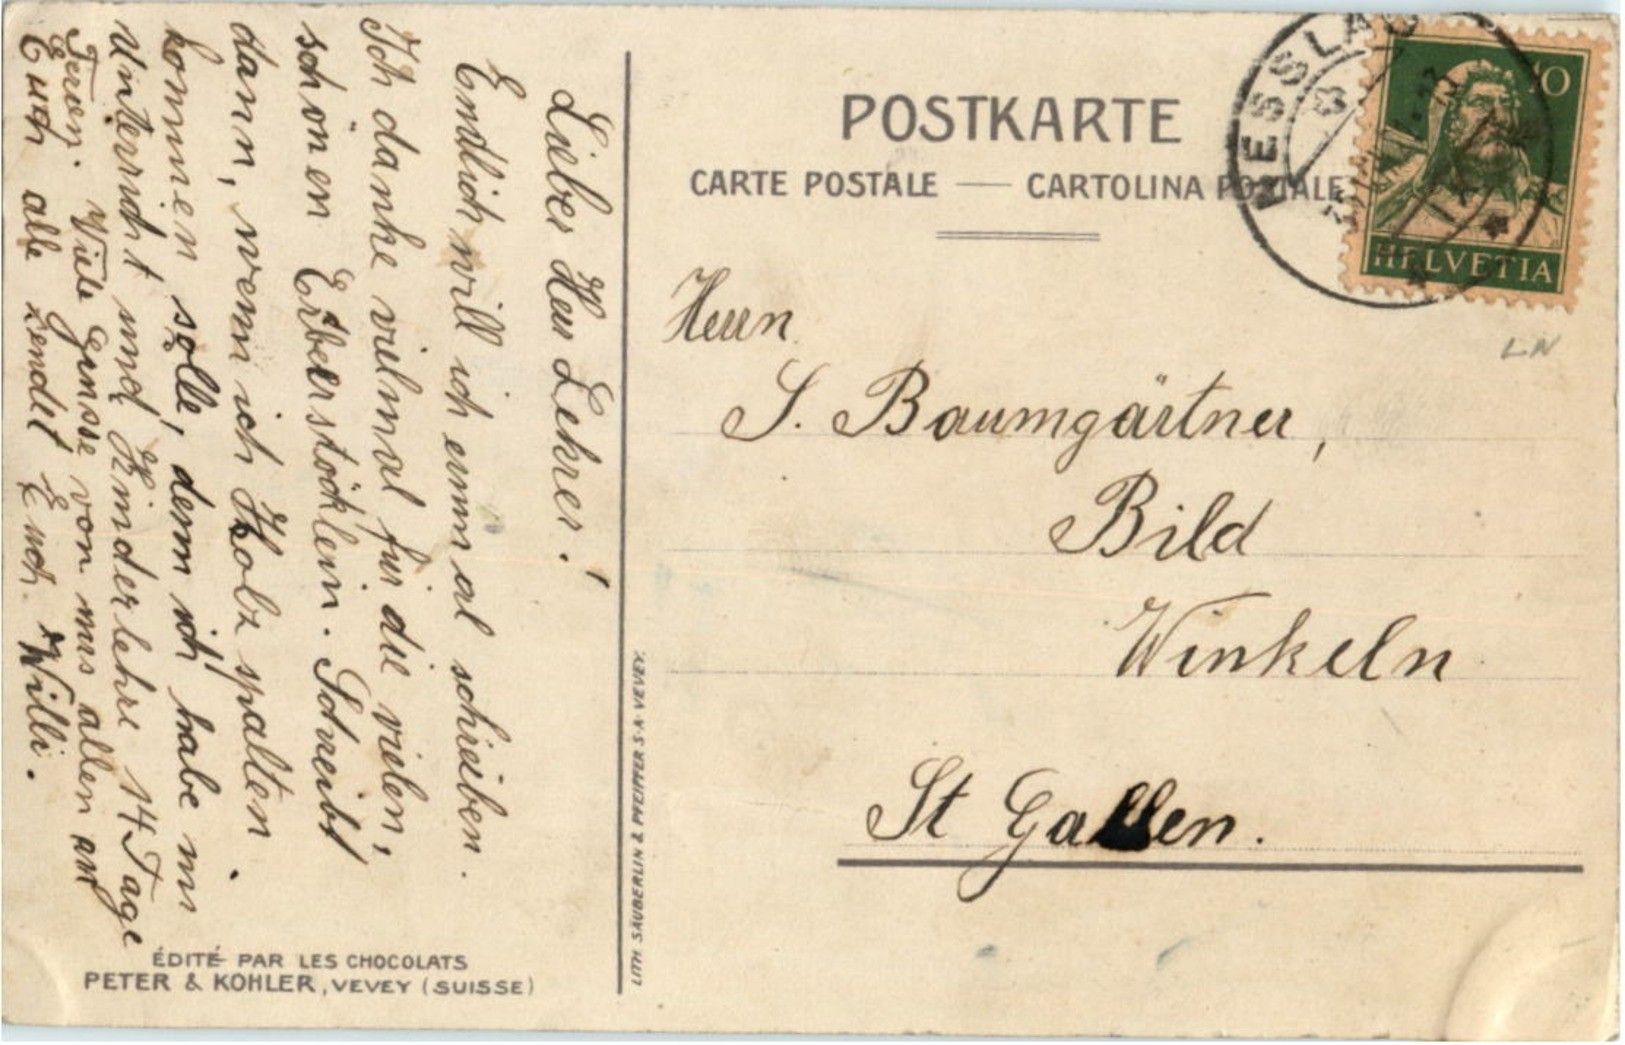 Lieber Herr Lehrer!
Endlich will ich einmal schreiben.
Ich danke vielmal für die vielen,
schönen Erbeerstöcklein. Schreibt
dann, wenn ich Holz spalten
kommen solle, denn ich habe im
Unterricht und Kinderlehre 14 Tage
Ferien. Viele Grüsse von uns allen an
Euch alle sendet Euch Willi.
ÉDITÉ PAR LES CHOCOLATS
PETER & KOHLER, VEVEY (SUISSE)
LITH SÄUBERLIN & PFEIFFER S.A. VEVEY.
POSTKARTE
CARTE POSTALE — CARTOLINA POSTALE
NESSLAU
10
HELVETIA
LN
Herrn
S. Baumgärtner,
Bild
Winkeln
St Gallen.